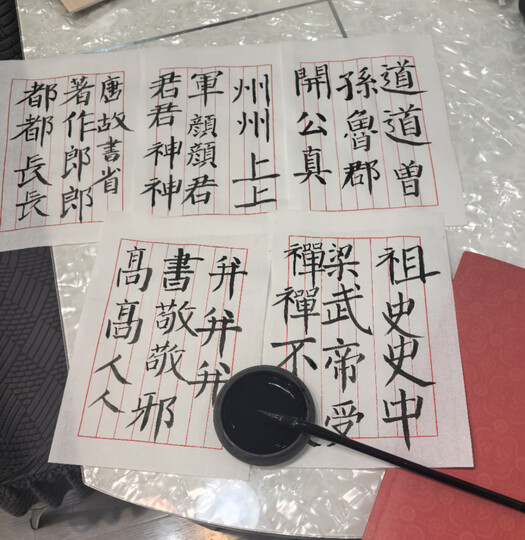 道道曾
孫魯郡
開公真
州州上上
軍顏顏君
君君神神
唐故書省
著作郎郎
都都長長
祖史史中
梁武帝受
禪禪不
并并并
書敬敬邪
髙髙人人